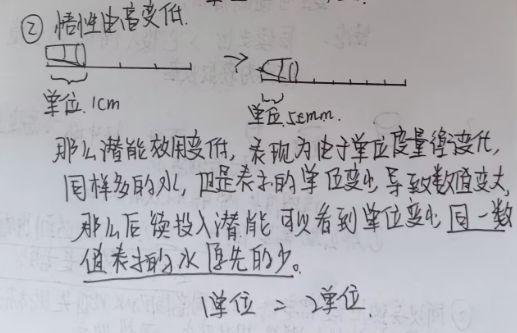 ② 悟性由高变低.
单位.1cm
单位.5mm.
那么潜能效用变低, 表现为由于单位度量衡变化,
同样多的水, 但是表示的单位变小 导致数值变大,
那么后续投入潜能 可以看到单位变小 同一数
值表示的水 原先的少。
1单位 = 2单位.